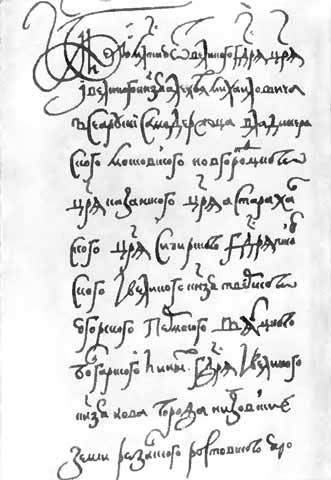 ѿ великого гдрѧ црѧ
и великого кнзѧ алеѯѣѧ михаиловича
всеа русиі самодержца владимер
ского московского новгородцког
црѧ казанского црѧ астрахан
ского црѧ сибирског гдрѧ псков
ского и великого кнзѧ тверског
югорского пермского вяцког
болгарского и иных гдрѧ и великого
кнзѧ нова города низовские
земли резанского ростовског яро